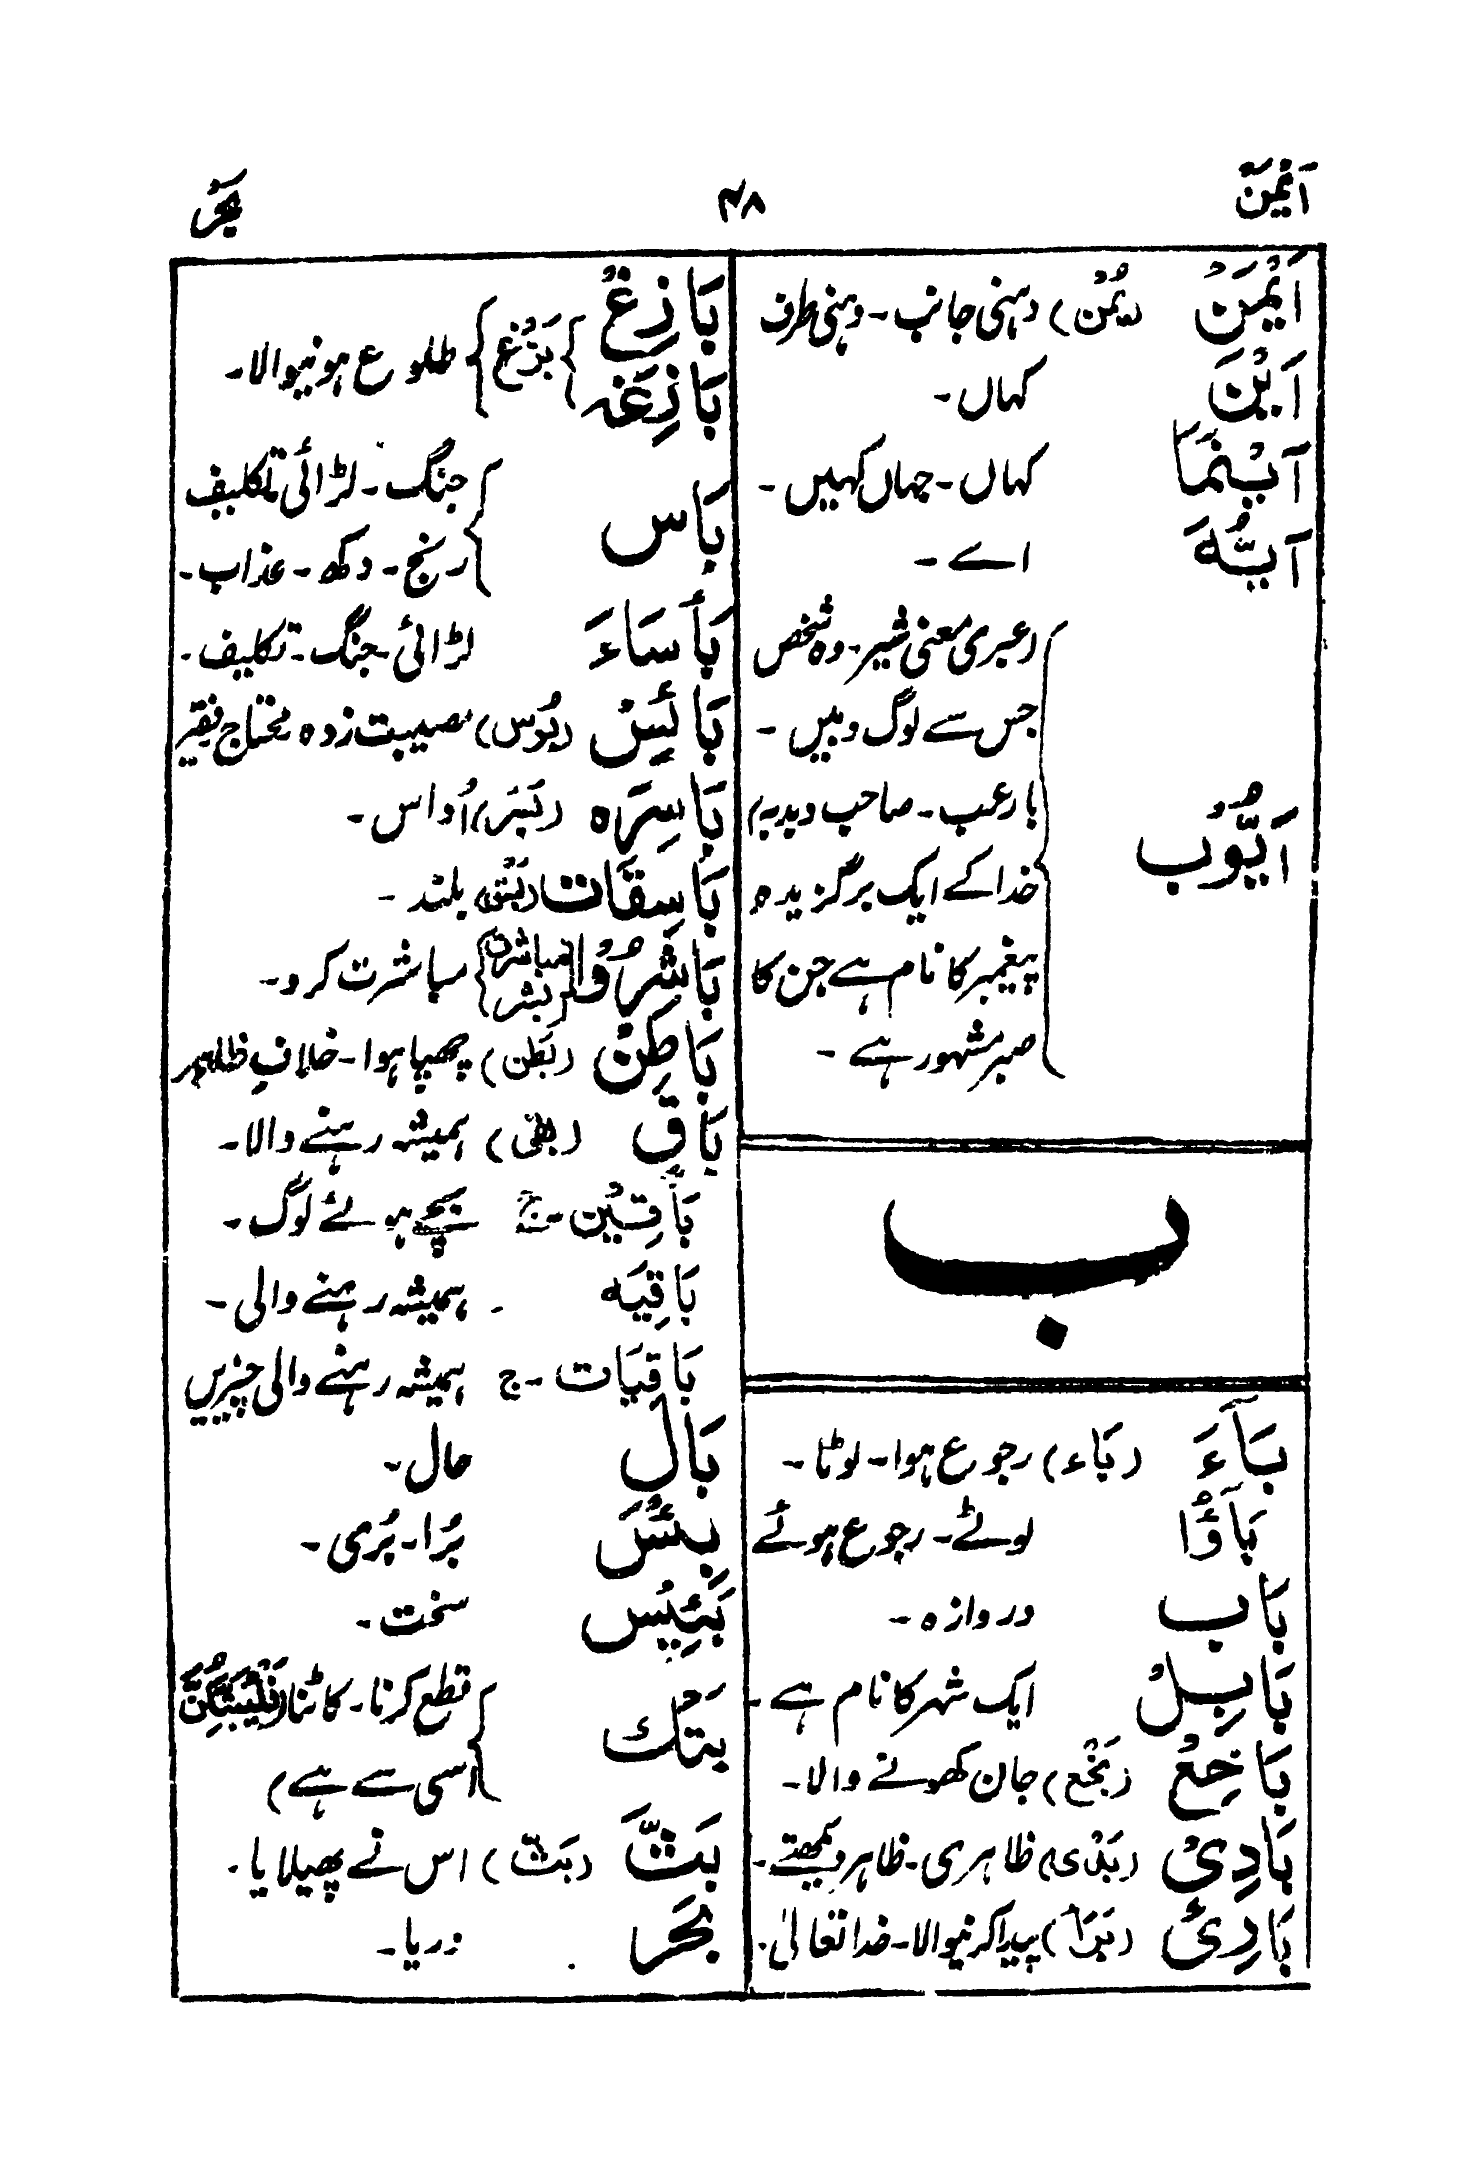 اَیْمَنَ
۴۸
بَحْر
اَیْمَنْ (یُمْن) دہنی جانب۔ دہنی طرف
اَیْنَ کہاں۔
اَیْنَمَا کہاں۔ جہاں کہیں۔
اَیَّتُهَ اے۔
اَیُّوْب (عبری معنی شیر۔ وہ شخص
جس سے لوگ دبیں۔
بارعب۔ صاحب دبدبہ)
خدا کے ایک برگزیدہ
پیغمبر کا نام ہے جن کا
صبر مشہور ہے۔
ب
بَآءَ (بَاء) رجوع ہوا۔ لوٹا۔
بَآؤُا لوٹے۔ رجوع ہوئے
بَاب دروازہ۔
بَابِلْ ایک شہر کا نام ہے۔
بَاخِعْ (بَخْع) جان کھونے والا۔
بَادِیْ (بَدْی) ظاہری۔ ظاہر دیکھتے۔
بَارِئْ (بَرَأ) پیدا کرنیوالا۔ خدا تعالیٰ۔
بَازِغْ
بَازِغَہ {بَزُغ} طلوع ہونیوالا۔
بَاس جنگ۔ لڑائی تکلیف
رنج۔ دکھ۔ عذاب۔
بَأسَاءَ لڑائی۔ جنگ۔ تکلیف۔
بَائِسْ (بُوس) مصیبت زدہ محتاج فقیر
بَاسِرَہ (بَسَر) اُداس۔
بَاسِقَات (بَسَق) بلند۔
بَاشِرُوْا {مباشرت بشر} مباشرت کرو۔
بَاطِنْ (بَطَن) چھپا ہوا۔ خلافِ ظاہر
بَاقٍ (بقی) ہمیشہ رہنے والا۔
بَاقِیْن۔ ج بچے ہوئے لوگ۔
بَاقِیَہ ہمیشہ رہنے والی۔
بَاقِیَات۔ ج ہمیشہ رہنے والی چیزیں
بَال حال۔
بِئْسَ بُرا۔ بُری۔
بَئِیْس سخت۔
بَتَك قطع کرنا۔ کاٹنا (فَلَیُبَتِّکُنَّ
اسی سے ہے)
بَثَّ (بَثّ) اس نے پھیلایا۔
بَحْر دریا۔